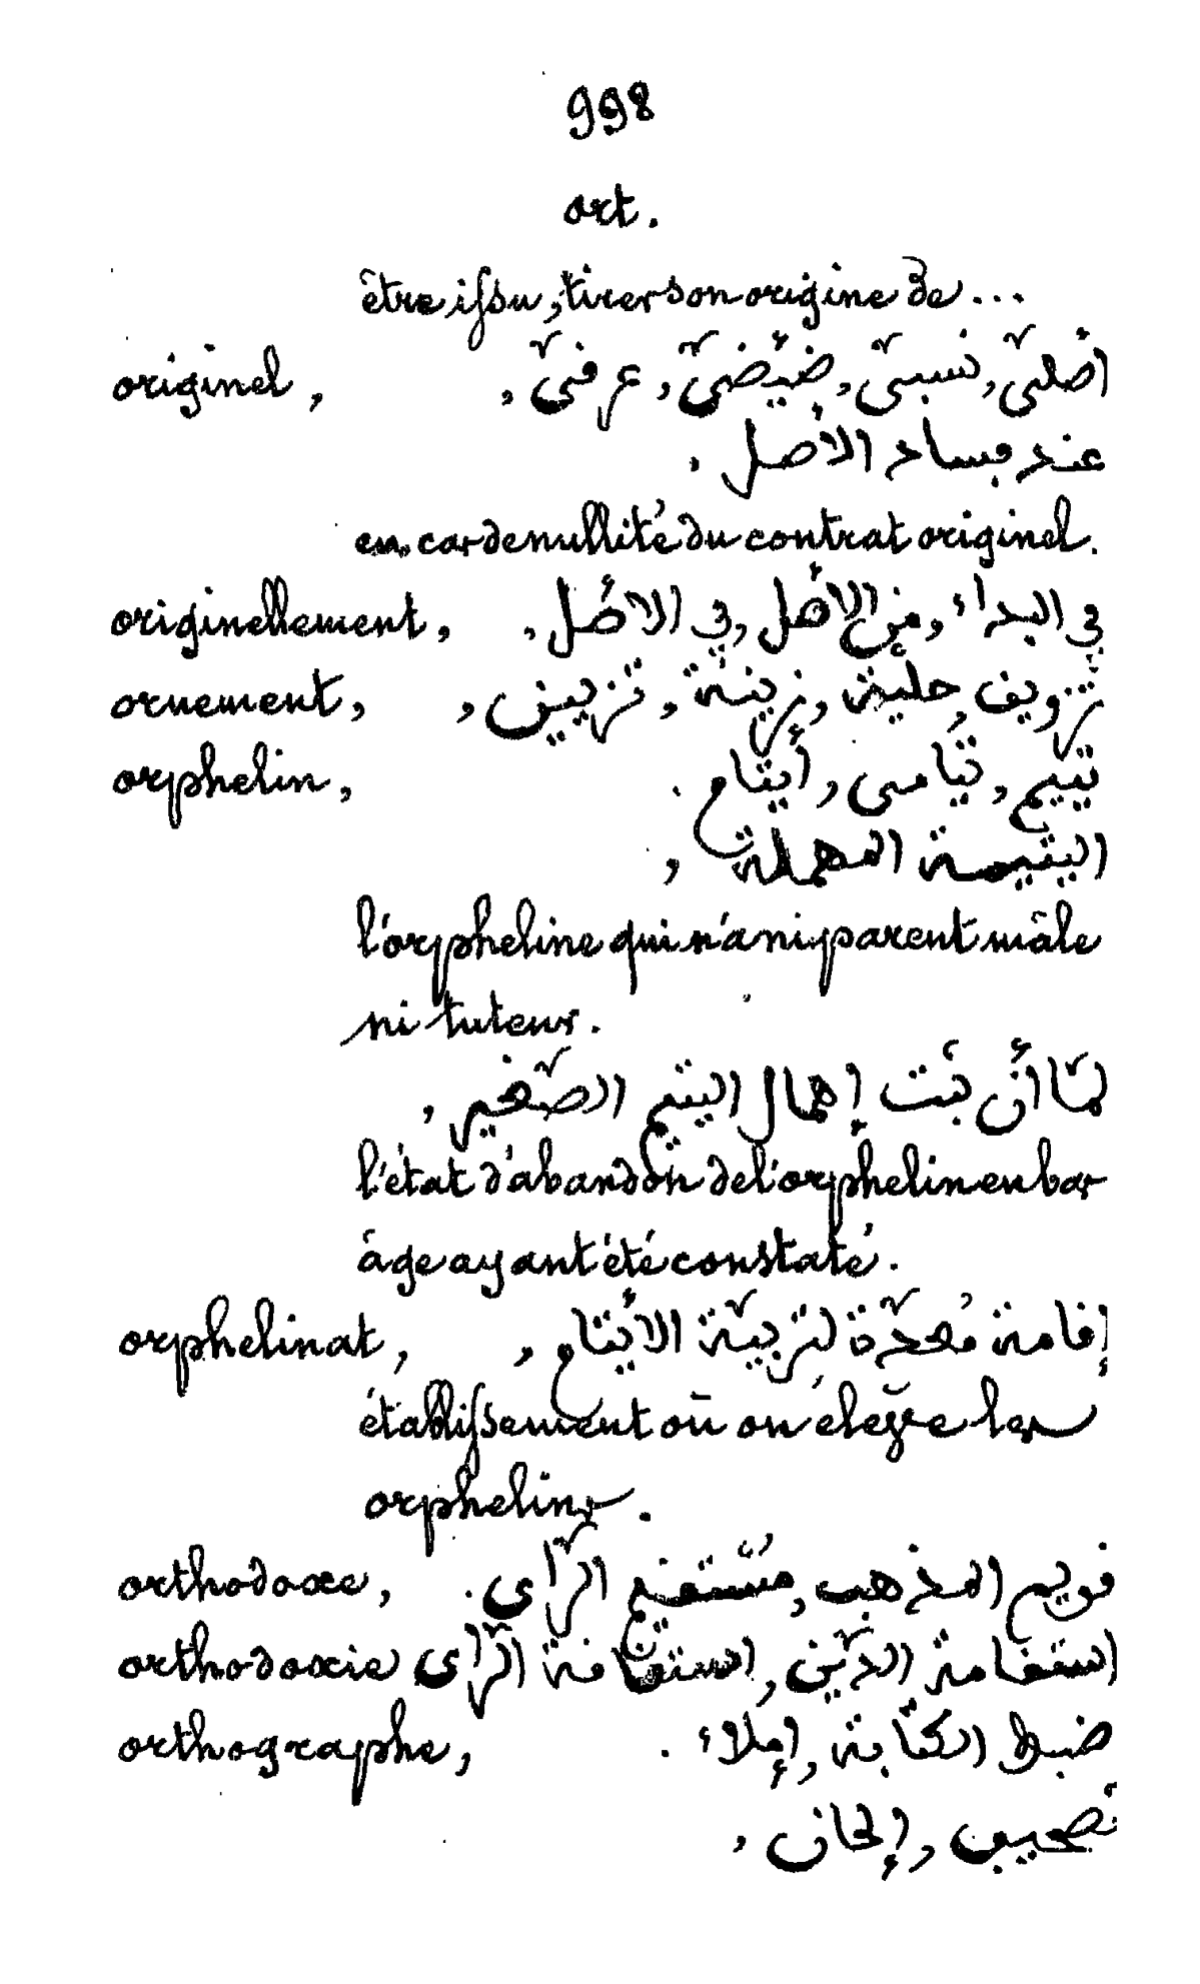 998
ort.
être issu, tirer son origine de...
originel, أصلىّ, نسبىّ, ضيضىّ, عرفىّ,
عند فساد الأصل,
en cas de nullité du contrat originel.
originellement, في البداء, من الأصل, في الأصل,
ornement, تزويف, حلية, زينة, تزيين,
orphelin, يتيم, يتامى, أيتام.
اليتيمة المهملة,
l'orpheline qui n'a ni parent mâle
ni tuteur.
لمّا أن ثبت إهمال اليتيم الصّغير,
l'état d'abandon de l'orphelin en bas
âge ayant été constaté.
orphelinat, إقامة مُعدّة لتربيّة الأيتام,
établissement où on élève les
orphelins.
orthodoxe, قويم المذهب, مستقيم الرّأى.
orthodoxie استقامة الدّين, استقامة الرّأى
orthographe, ضبط الكتابة, إملاء.
تصحيف, إلحان,